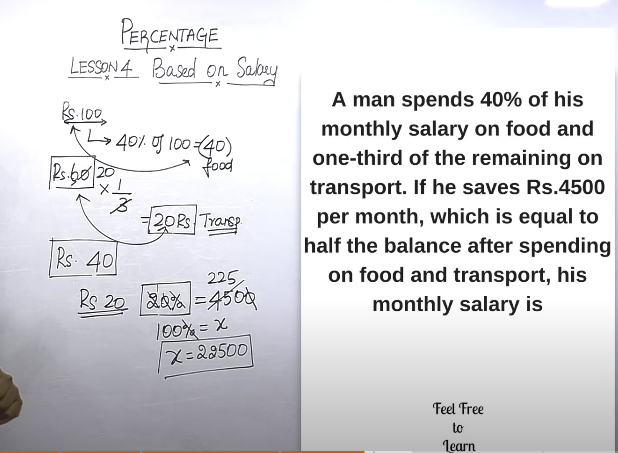 PERCENTAGE
LESSON 4 Based on Salary
Rs. 100
40% of 100 = (40)
food
Rs. 60 20
× 1
3
= 20 Rs. Transp
Rs. 40
225
Rs 20 20% = 4500
100% = x
x = 22500
A man spends 40% of his
monthly salary on food and
one-third of the remaining on
transport. If he saves Rs.4500
per month, which is equal to
half the balance after spending
on food and transport, his
monthly salary is
Feel Free
to
Learn